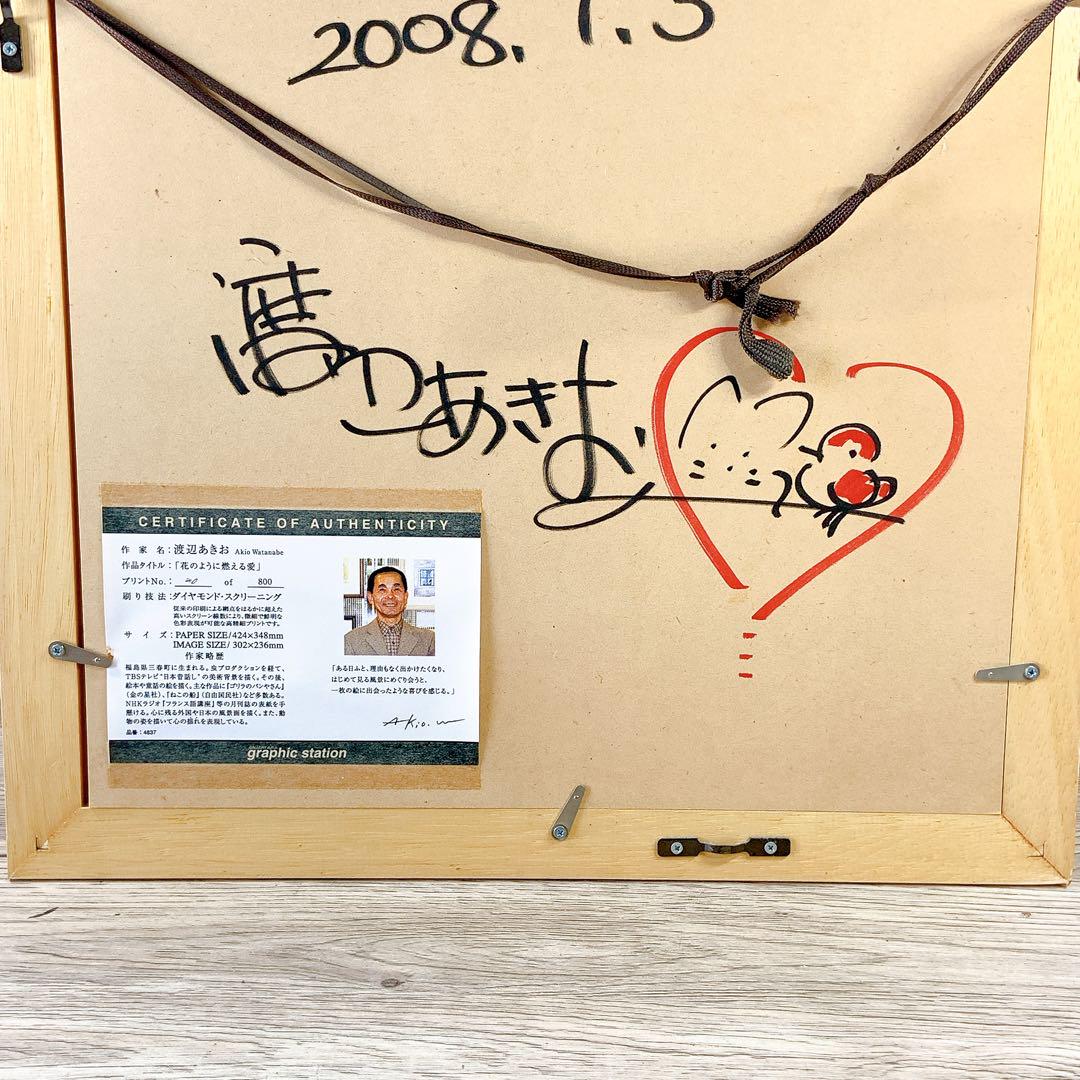 2008. 1.5
渡辺あきお
CERTIFICATE OF AUTHENTICITY
作家名：渡辺あきお Akio Watanabe
作品タイトル：「花のように燃える愛」
プリントNo.： 20 of 800
刷り技法：ダイヤモンド・スクリーニング
従来の印刷による網点をはるかに超えた
高いスクリーン線数により、微細で鮮明な
色彩表現が可能な高精細プリントです。
サイズ：PAPER SIZE/424×348mm
IMAGE SIZE/302×236mm
作家略歴
福島県三春町に生まれる。虫プロダクションを経て、
TBSテレビ"日本昔話し"の美術背景を描く。その後、
絵本や童話の絵を描く。主な作品に『ゴリラのパンやさん』
(金の星社)、『ねこの船』(自由国民社)など多数ある。
NHKラジオ『フランス語講座』等の月刊誌の表紙を手
懸ける。心に残る外国や日本の風景画を描く。また、動
物の姿を描いて心の揺れを表現している。
品番：4837
「ある日ふと、理由もなく出かけたくなり、
はじめて見る風景にめぐり会うと、
一枚の絵に出会ったような喜びを感じる。」
Akio. W
graphic station